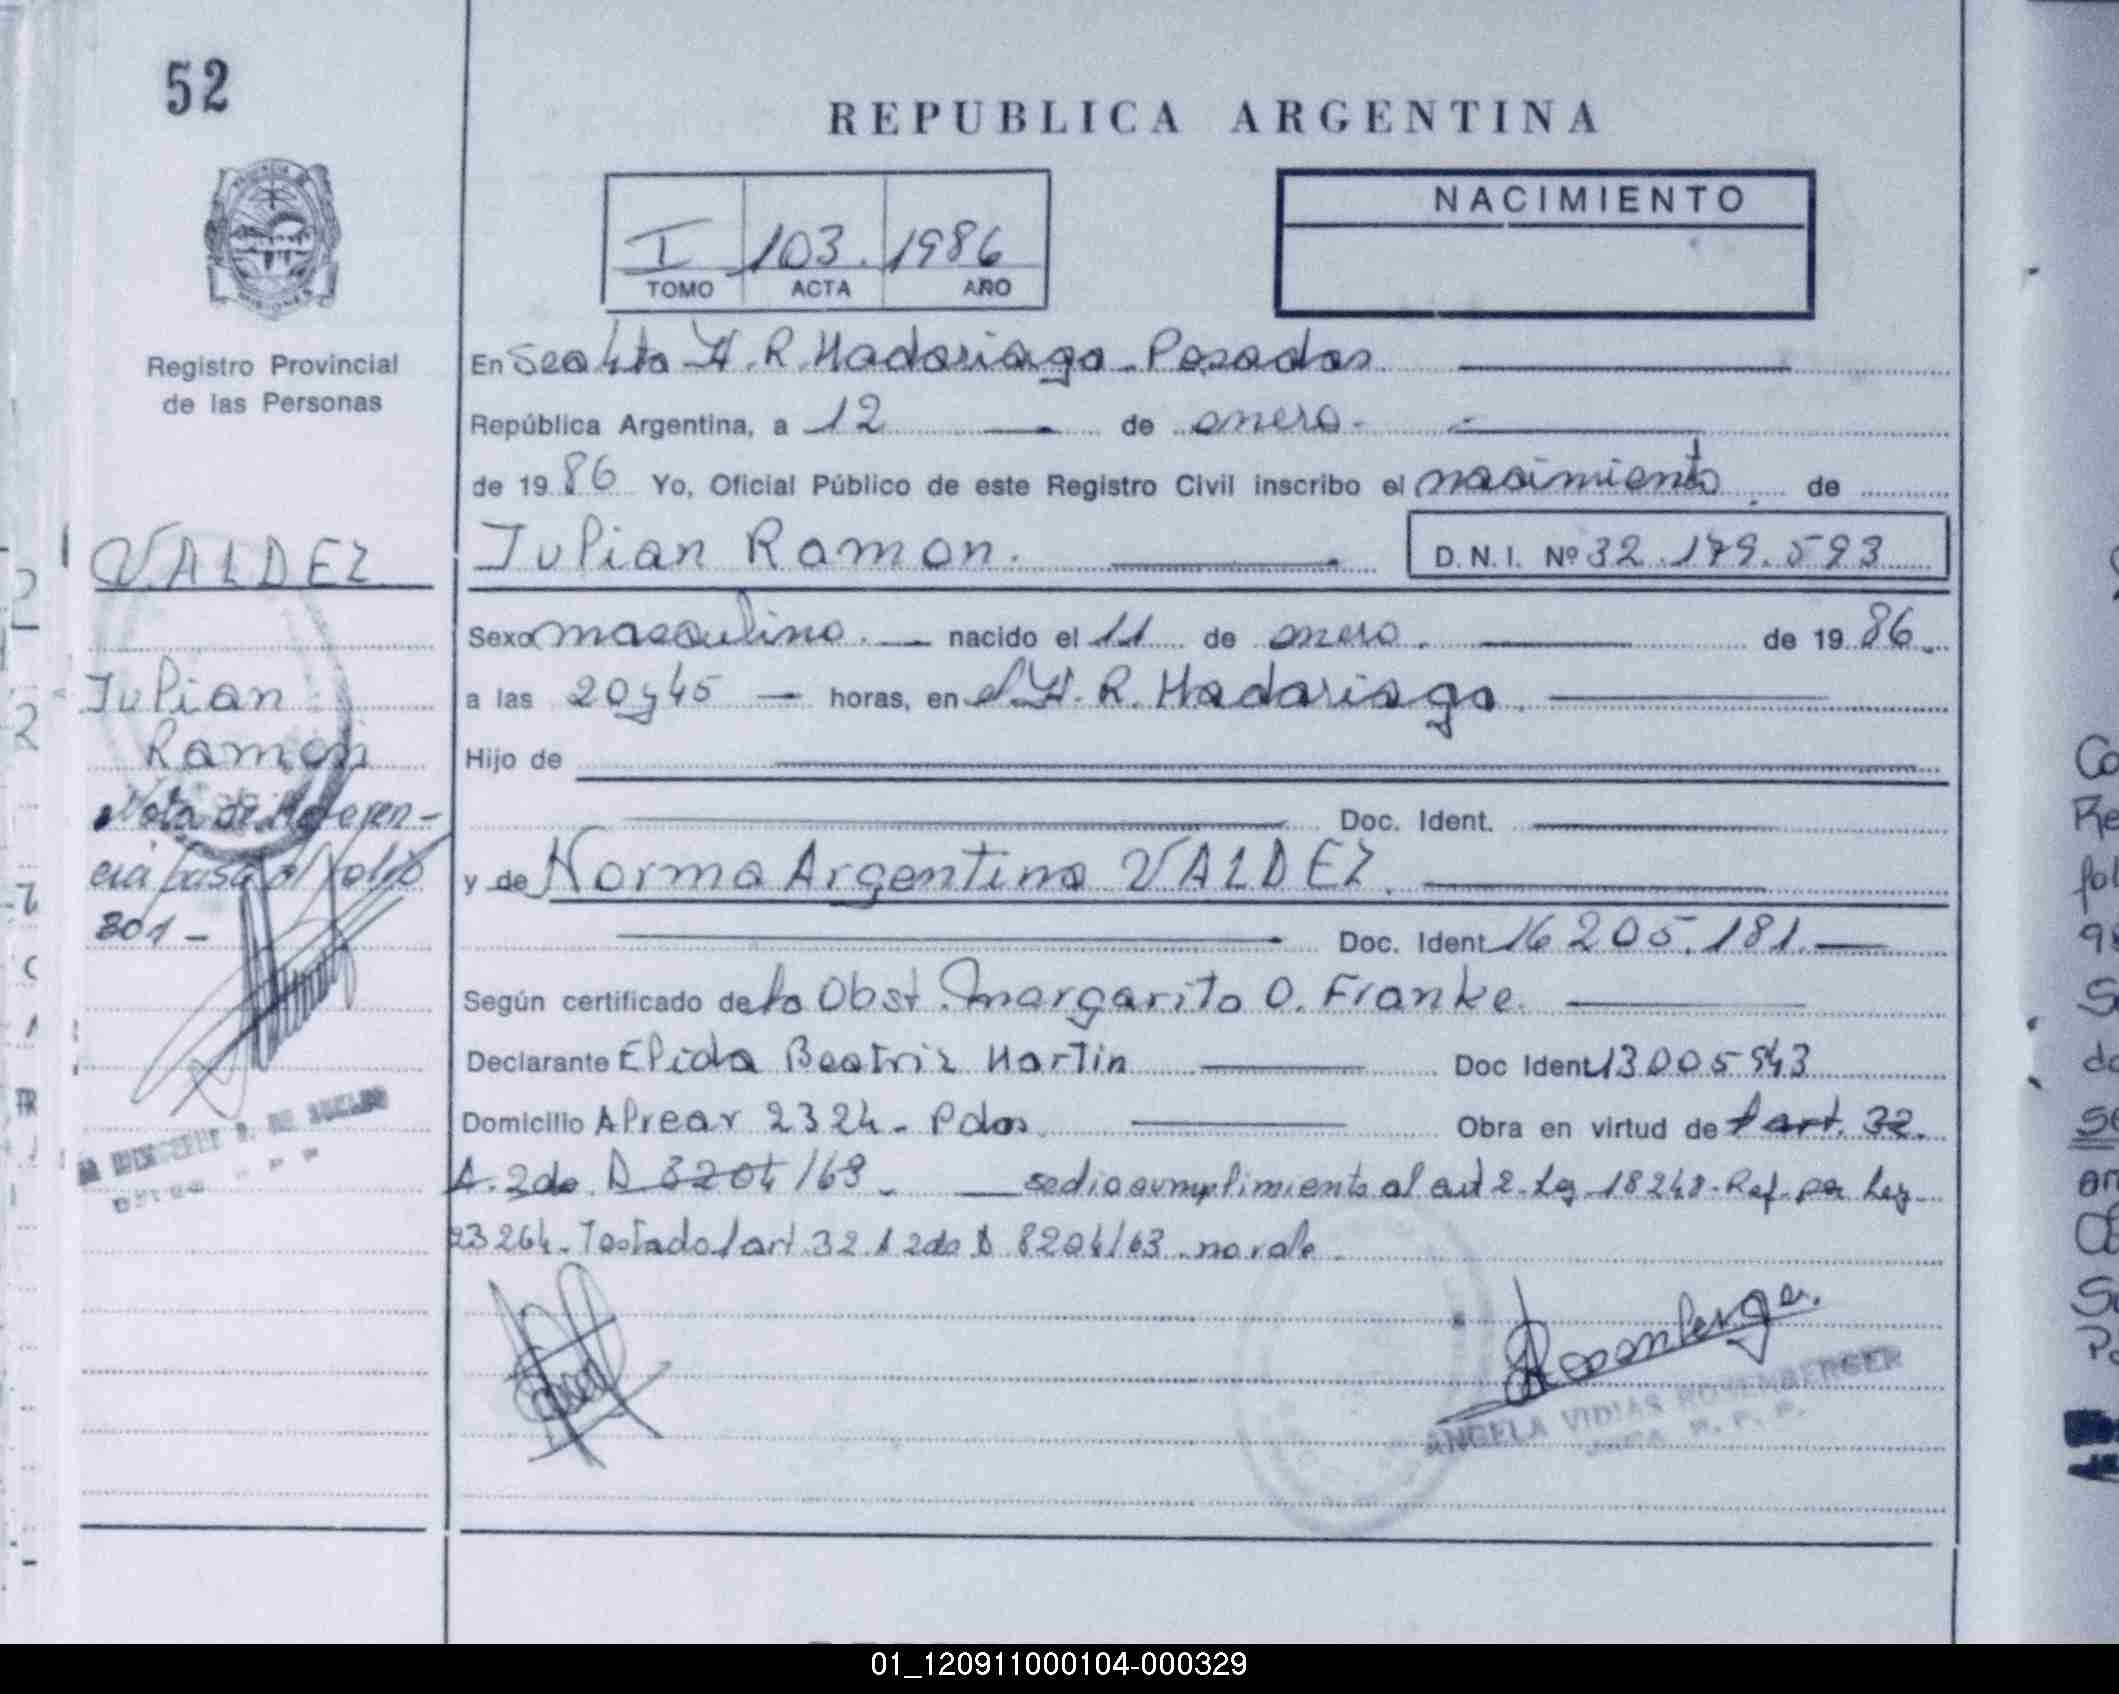 52
REPUBLICA ARGENTINA
NACIMIENTO
I 103. 1986
TOMO ACTA AÑO
Registro Provincial
de las Personas
En Secc 4ta H. R. Madariaga - Posadas.
República Argentina, a 12 de enero.
de 1986 Yo, Oficial Público de este Registro Civil inscribo el nacimiento de
VALDEZ
Julian Ramon. D.N.I. Nº 32.179.593
Sexo masculino. nacido el 11 de enero. de 1986.
Julian
Ramon
a las 20 y 45 horas, en el H. R. Madariaga.
Hijo de
Nota de Referen-
cia pasa al folio
301-
Doc. Ident.
y de Norma Argentina VALDEZ.
Doc. Ident 16 205.181.
Según certificado de la Obst. Margarita O. Franke.
Declarante Elida Beatriz Martin Doc Ident 13005943
Domicilio Alvear 2324 - Pdas Obra en virtud de l art. 32.
A. 2do. D 8204/63. se dio cumplimiento al art 2. Ley 18248. Ref. por Ley
23264. Testado l art. 32 A 2do D 8204/63. no vale
ANGELA VIDIAS ROSENBERGER
R. P. P.
01_120911000104-000329